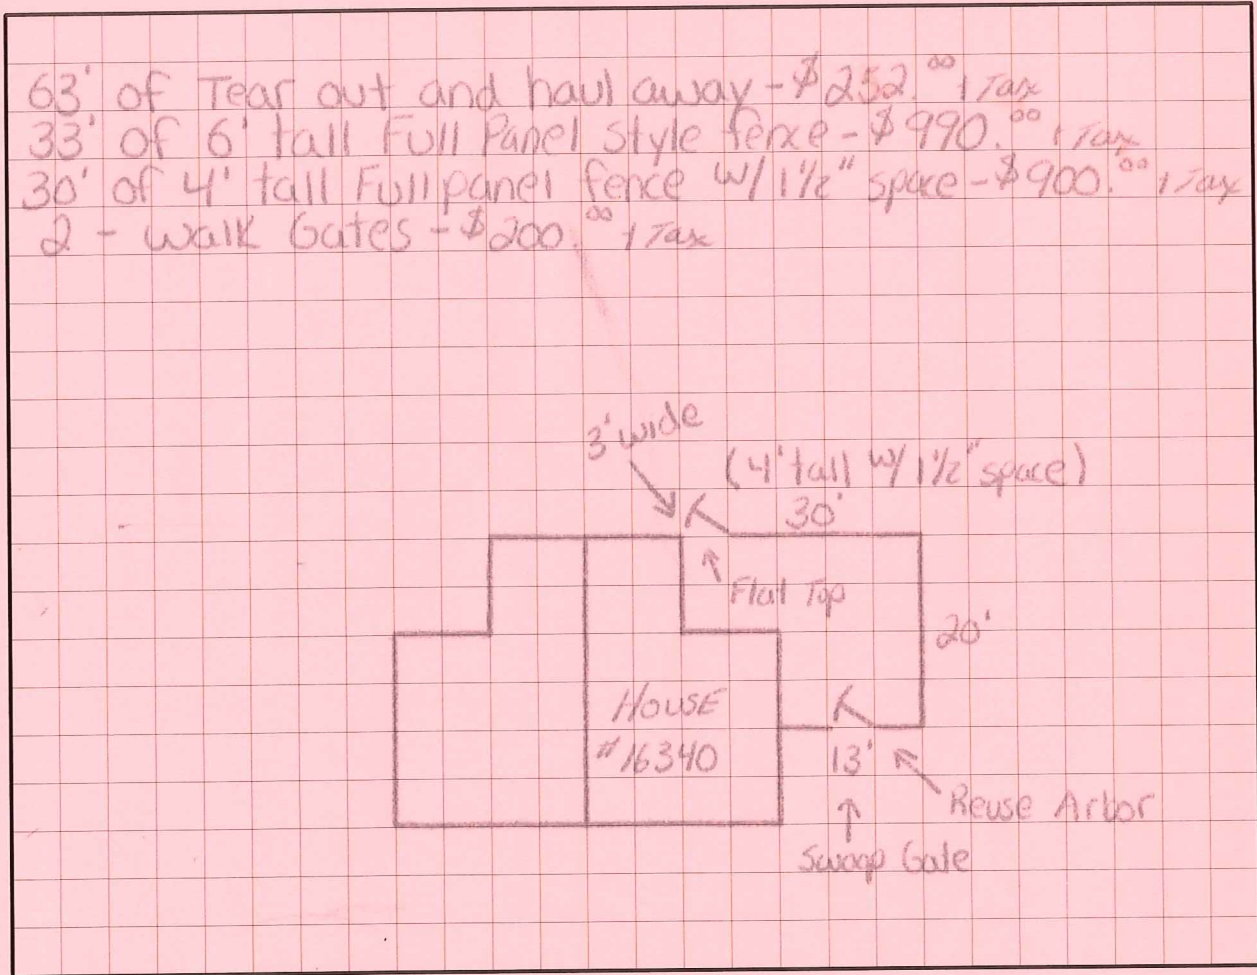 63' of Tear out and haul away - $252.00 + Tax
33' of 6' tall Full Panel Style fence - $990.00 + Tax
30' of 4' tall Full panel fence w/ 1 1/2" space - $900.00 + Tax
2 - Walk Gates - $200.00 + Tax
3' wide
(4' tall w/ 1 1/2" space)
30'
Flat Top
20'
HOUSE
#16340
13'
Reuse Arbor
Swoop Gate